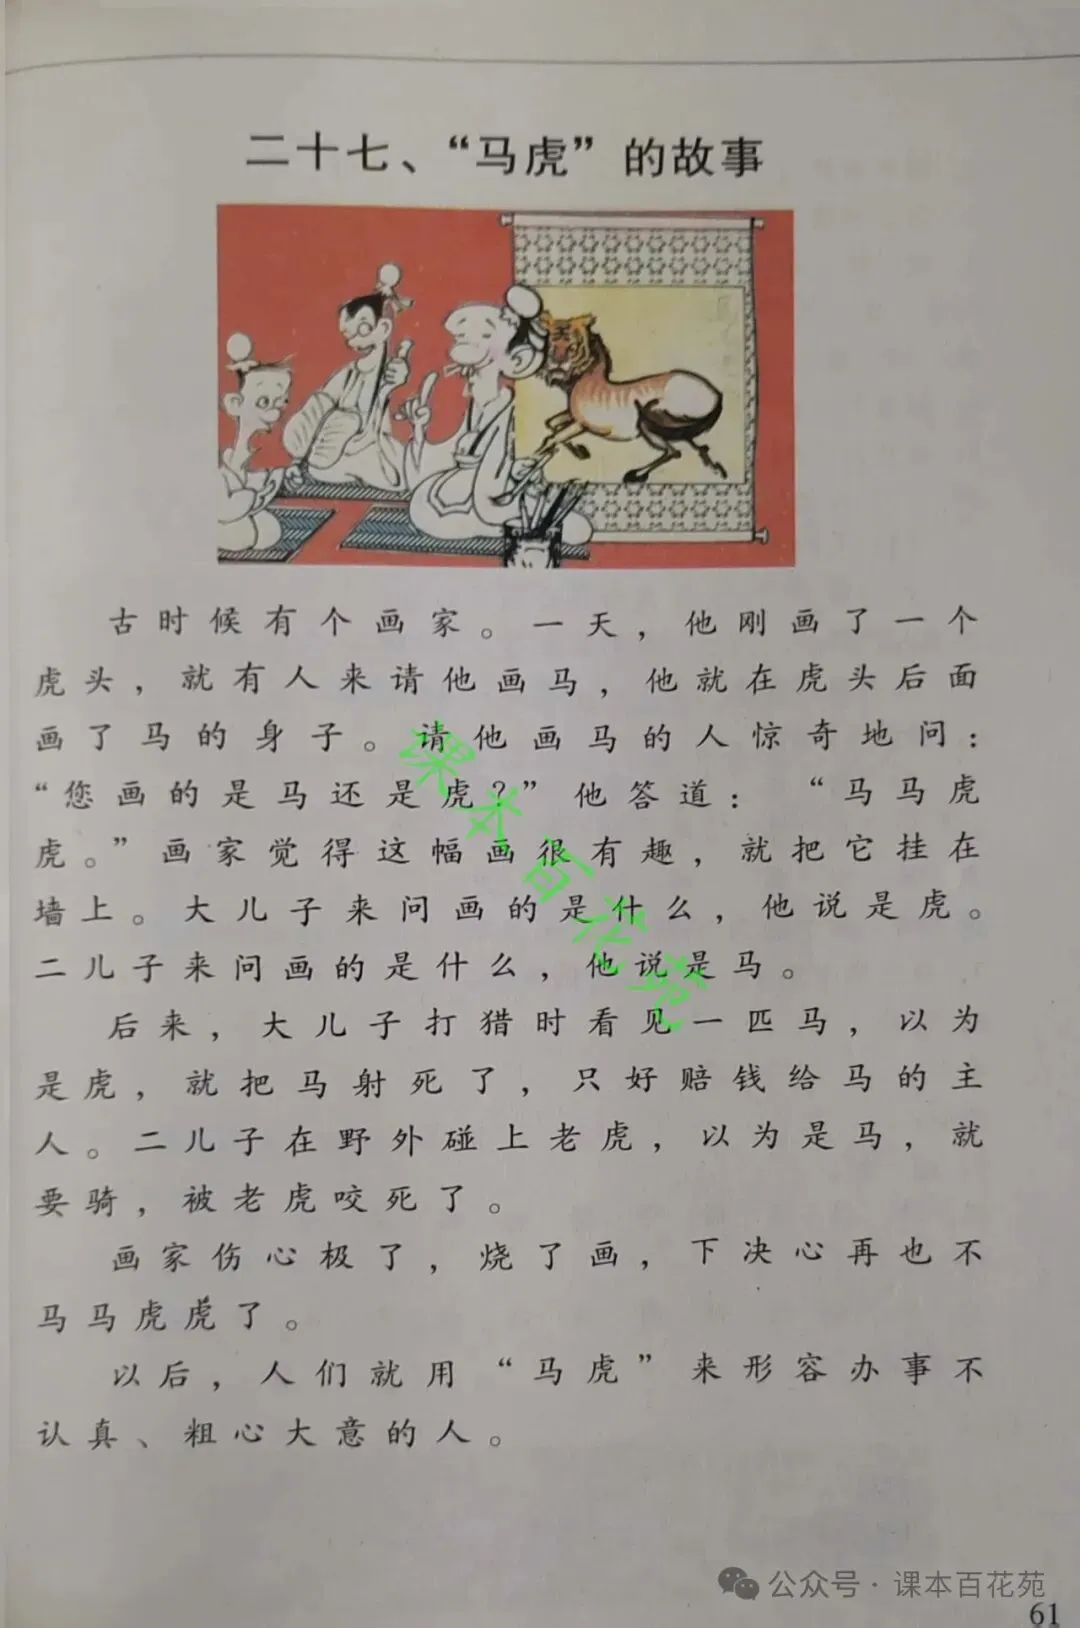 二十七、“马虎”的故事
古时候有个画家。一天，他刚画了一个
虎头，就有人来请他画马，他就在虎头后面
画了马的身子。请他画马的人惊奇地问：
“您画的是马还是虎？”他答道：“马马虎
虎。”画家觉得这幅画很有趣，就把它挂在
墙上。大儿子来问画的是什么，他说是虎。
二儿子来问画的是什么，他说是马。
后来，大儿子打猎时看见一匹马，以为
是虎，就把马射死了，只好赔钱给马的主
人。二儿子在野外碰上老虎，以为是马，就
要骑，被老虎咬死了。
画家伤心极了，烧了画，下决心再也不
马马虎虎了。
以后，人们就用“马虎”来形容办事不
认真、粗心大意的人。
课本百花苑
公众号·课本百花苑
61